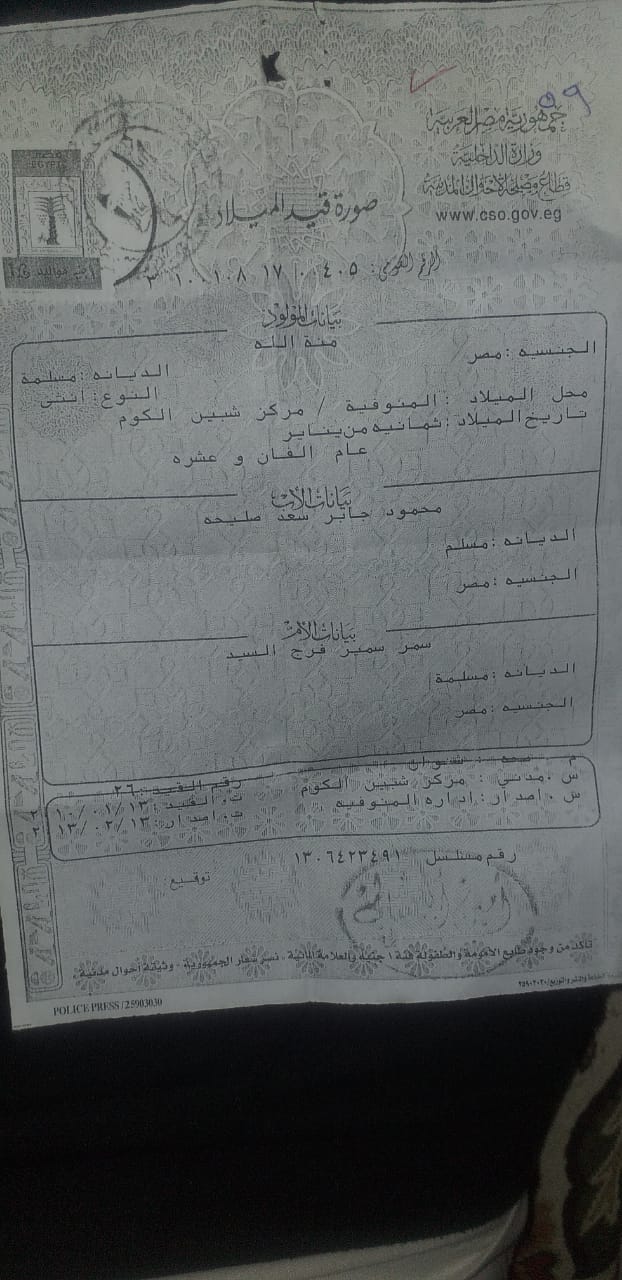 ٥٩
جمهورية مصر العربية
وزارة الداخلية
قطاع مصلحة الأحوال المدنية
www.cso.gov.eg
مصر
EGYPT
صورة قيد الميلاد
الرقم القومي: ٤٠٥ ٠ ١٧ ١٠٠١٠٨
بيانات المولود
منة الله
الجنسيه : مصر
الديانه : مسلمة
النوع : انثى
محل الميلاد : المنوفية / مركز شبين الكوم
تاريخ الميلاد : ثمانيه من يناير
عام الفان و عشره
بيانات الأب
محمود جابر سعد صليحه
الديانه : مسلم
الجنسيه : مصر
بيانات الأم
سمر سمير فرج السيد
الديانه : مسلمة
الجنسيه : مصر
م . صحه : شنوان
رقم القيد : ٢٦
س . مدني : مركز شبين الكوم
ت . القيد : ١٠/٠١/١٣
س . اصدار : اداره المنوفيه
ت . اصدار : ١٣/٠٢/١٣
رقم مسلسل ١٣٠٦٤٢٣٤٩١
توقيع :
تأكد من وجود طابع الأمومة والطفولة فئة ١ جنيه والعلامة المائية . نسر شعار الجمهورية - وثيقة أحوال مدنية .
POLICE PRESS / 25903030